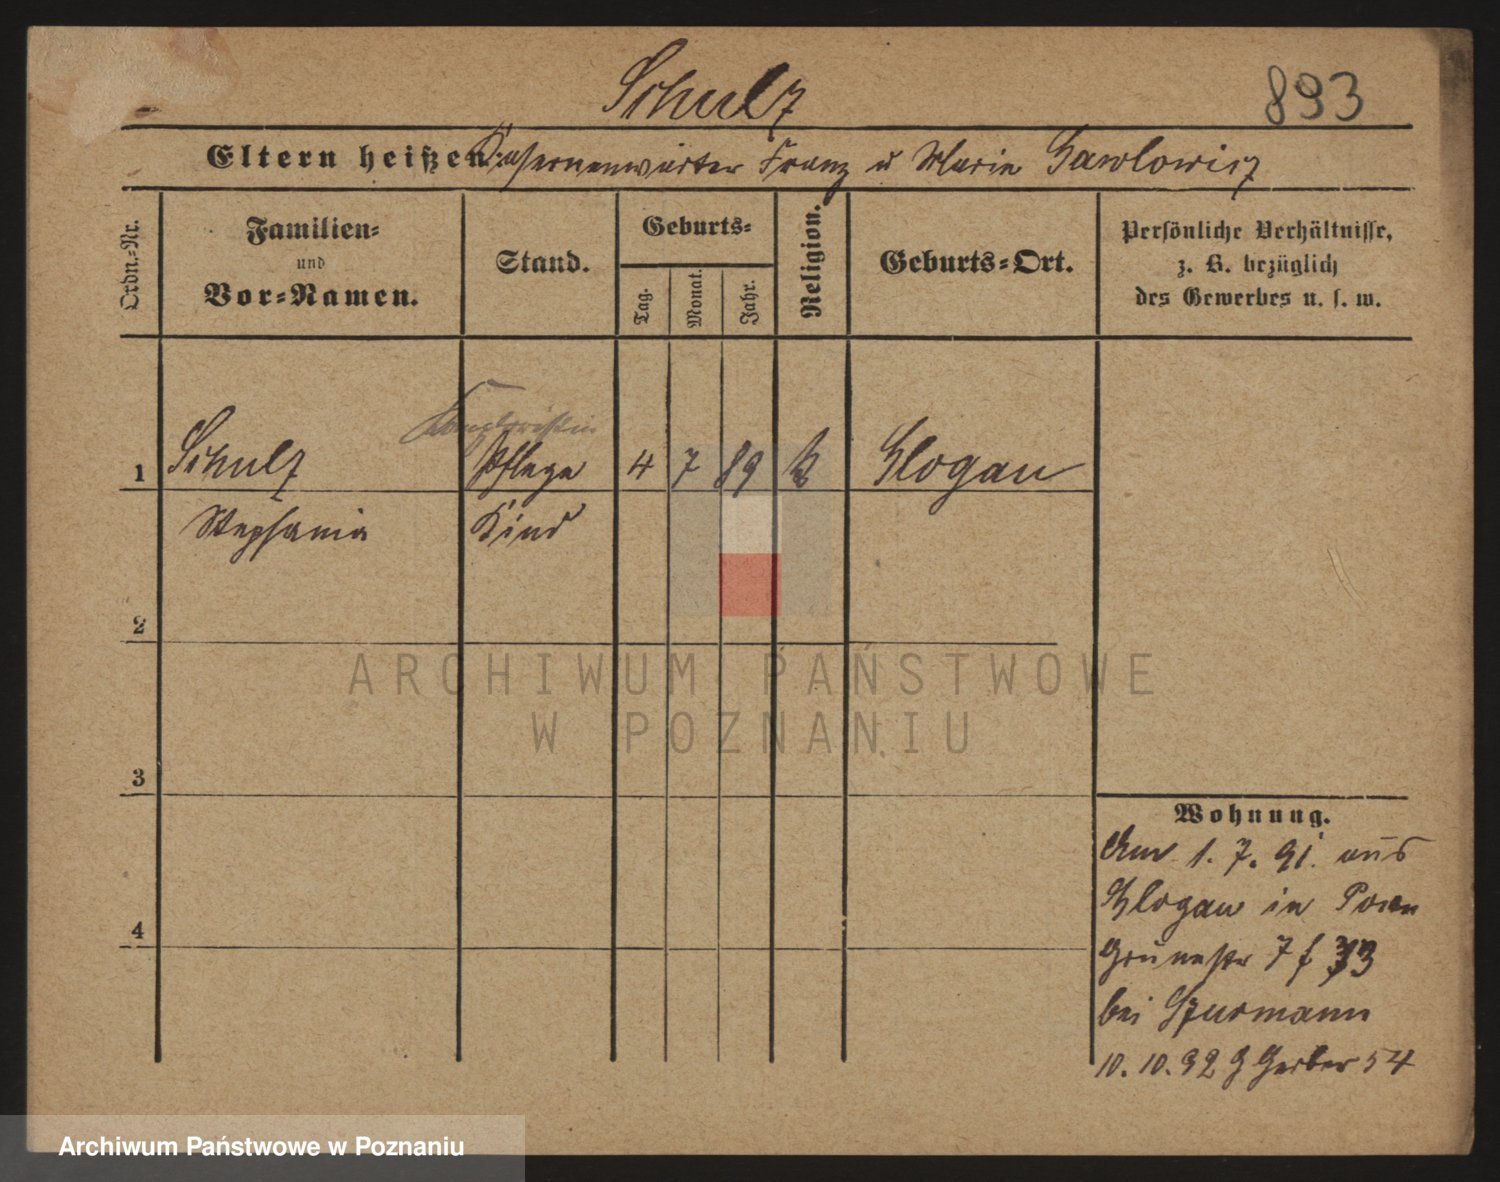 Schulz
893
Eltern heißen: Kasernenwärter Franz u Marie Gawlowicz
Ordn.-Nr.
Familien-
und
Vor-Namen.
Stand.
Geburts-
Tag.
Monat.
Jahr.
Religion.
Geburts-Ort.
Persönliche Verhältnisse,
z. B. bezüglich
des Gewerbes u. s. w.
Kontoristin
1 Schulz Pflege 4 7 89 k Glogau
Stephania Kind
2
3
4
Wohnung.
Am 1. 7. 91. aus
Glogau in Posen
Grünestr 7 f
bei Szurmann
10. 10. 92 Gerber 54
ARCHIWUM PAŃSTWOWE
W POZNANIU
Archiwum Państwowe w Poznaniu